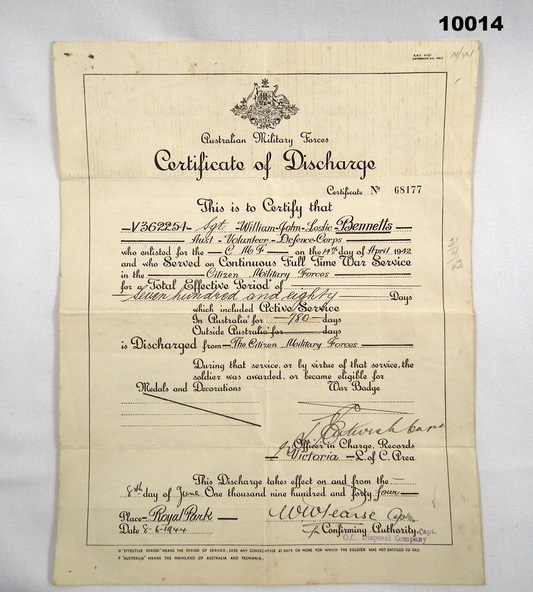 10014
Australian Military Forces
Certificate of Discharge
Certificate No 68177
This is to Certify that
V362254 Sgt William John Leslie Bennetts
Aust Volunteer Defence Corps
who enlisted for the C M F on the 14th day of April 1942
and who Served on Continuous Full Time War Service
in the Citizen Military Forces
for a Total Effective Period of
Seven hundred and eighty Days
which included Active Service
In Australia for 780 days
Outside Australia for days
is Discharged from The Citizen Military Forces
During that service, or by virtue of that service, the
soldier was awarded, or became eligible for
Medals and Decorations War Badge
Officer in Charge, Records
Victoria L. of C. Area
This Discharge takes effect on and from the
8th day of June One thousand nine hundred and forty four
Place Royal Park
Date 8-6-1944 Confirming Authority. Capt.
O.C. Disposal Company
"EFFECTIVE PERIOD" MEANS THE PERIOD OF SERVICE, LESS ANY CONSECUTIVE 21 DAYS OR MORE FOR WHICH THE SOLDIER WAS NOT ENTITLED TO PAY.
"AUSTRALIA" MEANS THE MAINLAND OF AUSTRALIA AND TASMANIA.